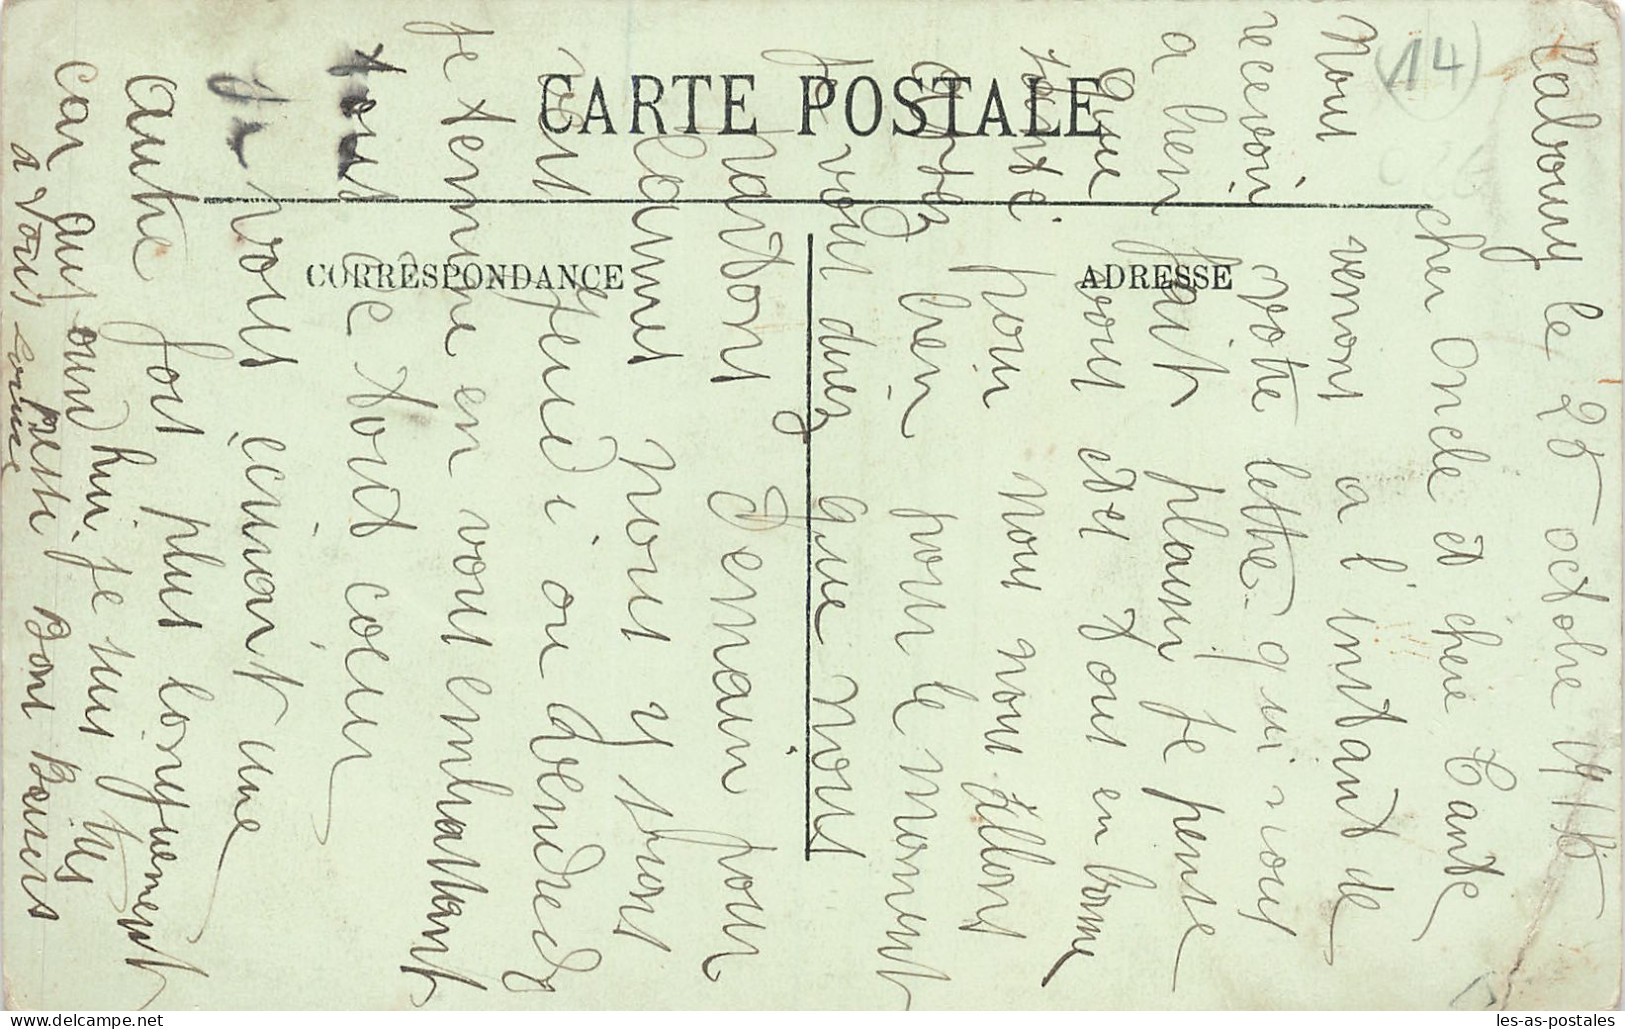 CARTE POSTALE
CORRESPONDANCE
ADRESSE
(14)
le 25 octobre 1915
cher Oncle et chère Tante
Nous venons a l'instant de
recevoir votre lettre qui nous
a bien fait plaisir je pense
que vous etes tous en bonne
santé. pour nous nous allons
assez bien pour le moment
je vous direz que nous
partons demain pour
Cannes nous y serons
jeudi ou vendredi
je termine en vous embrassant
tous de tout cœur
Je vous écirait une
autre fois plus longuement
car aujourd hui je suis très
pressé Bons Baisers
a vous
les-as-postales